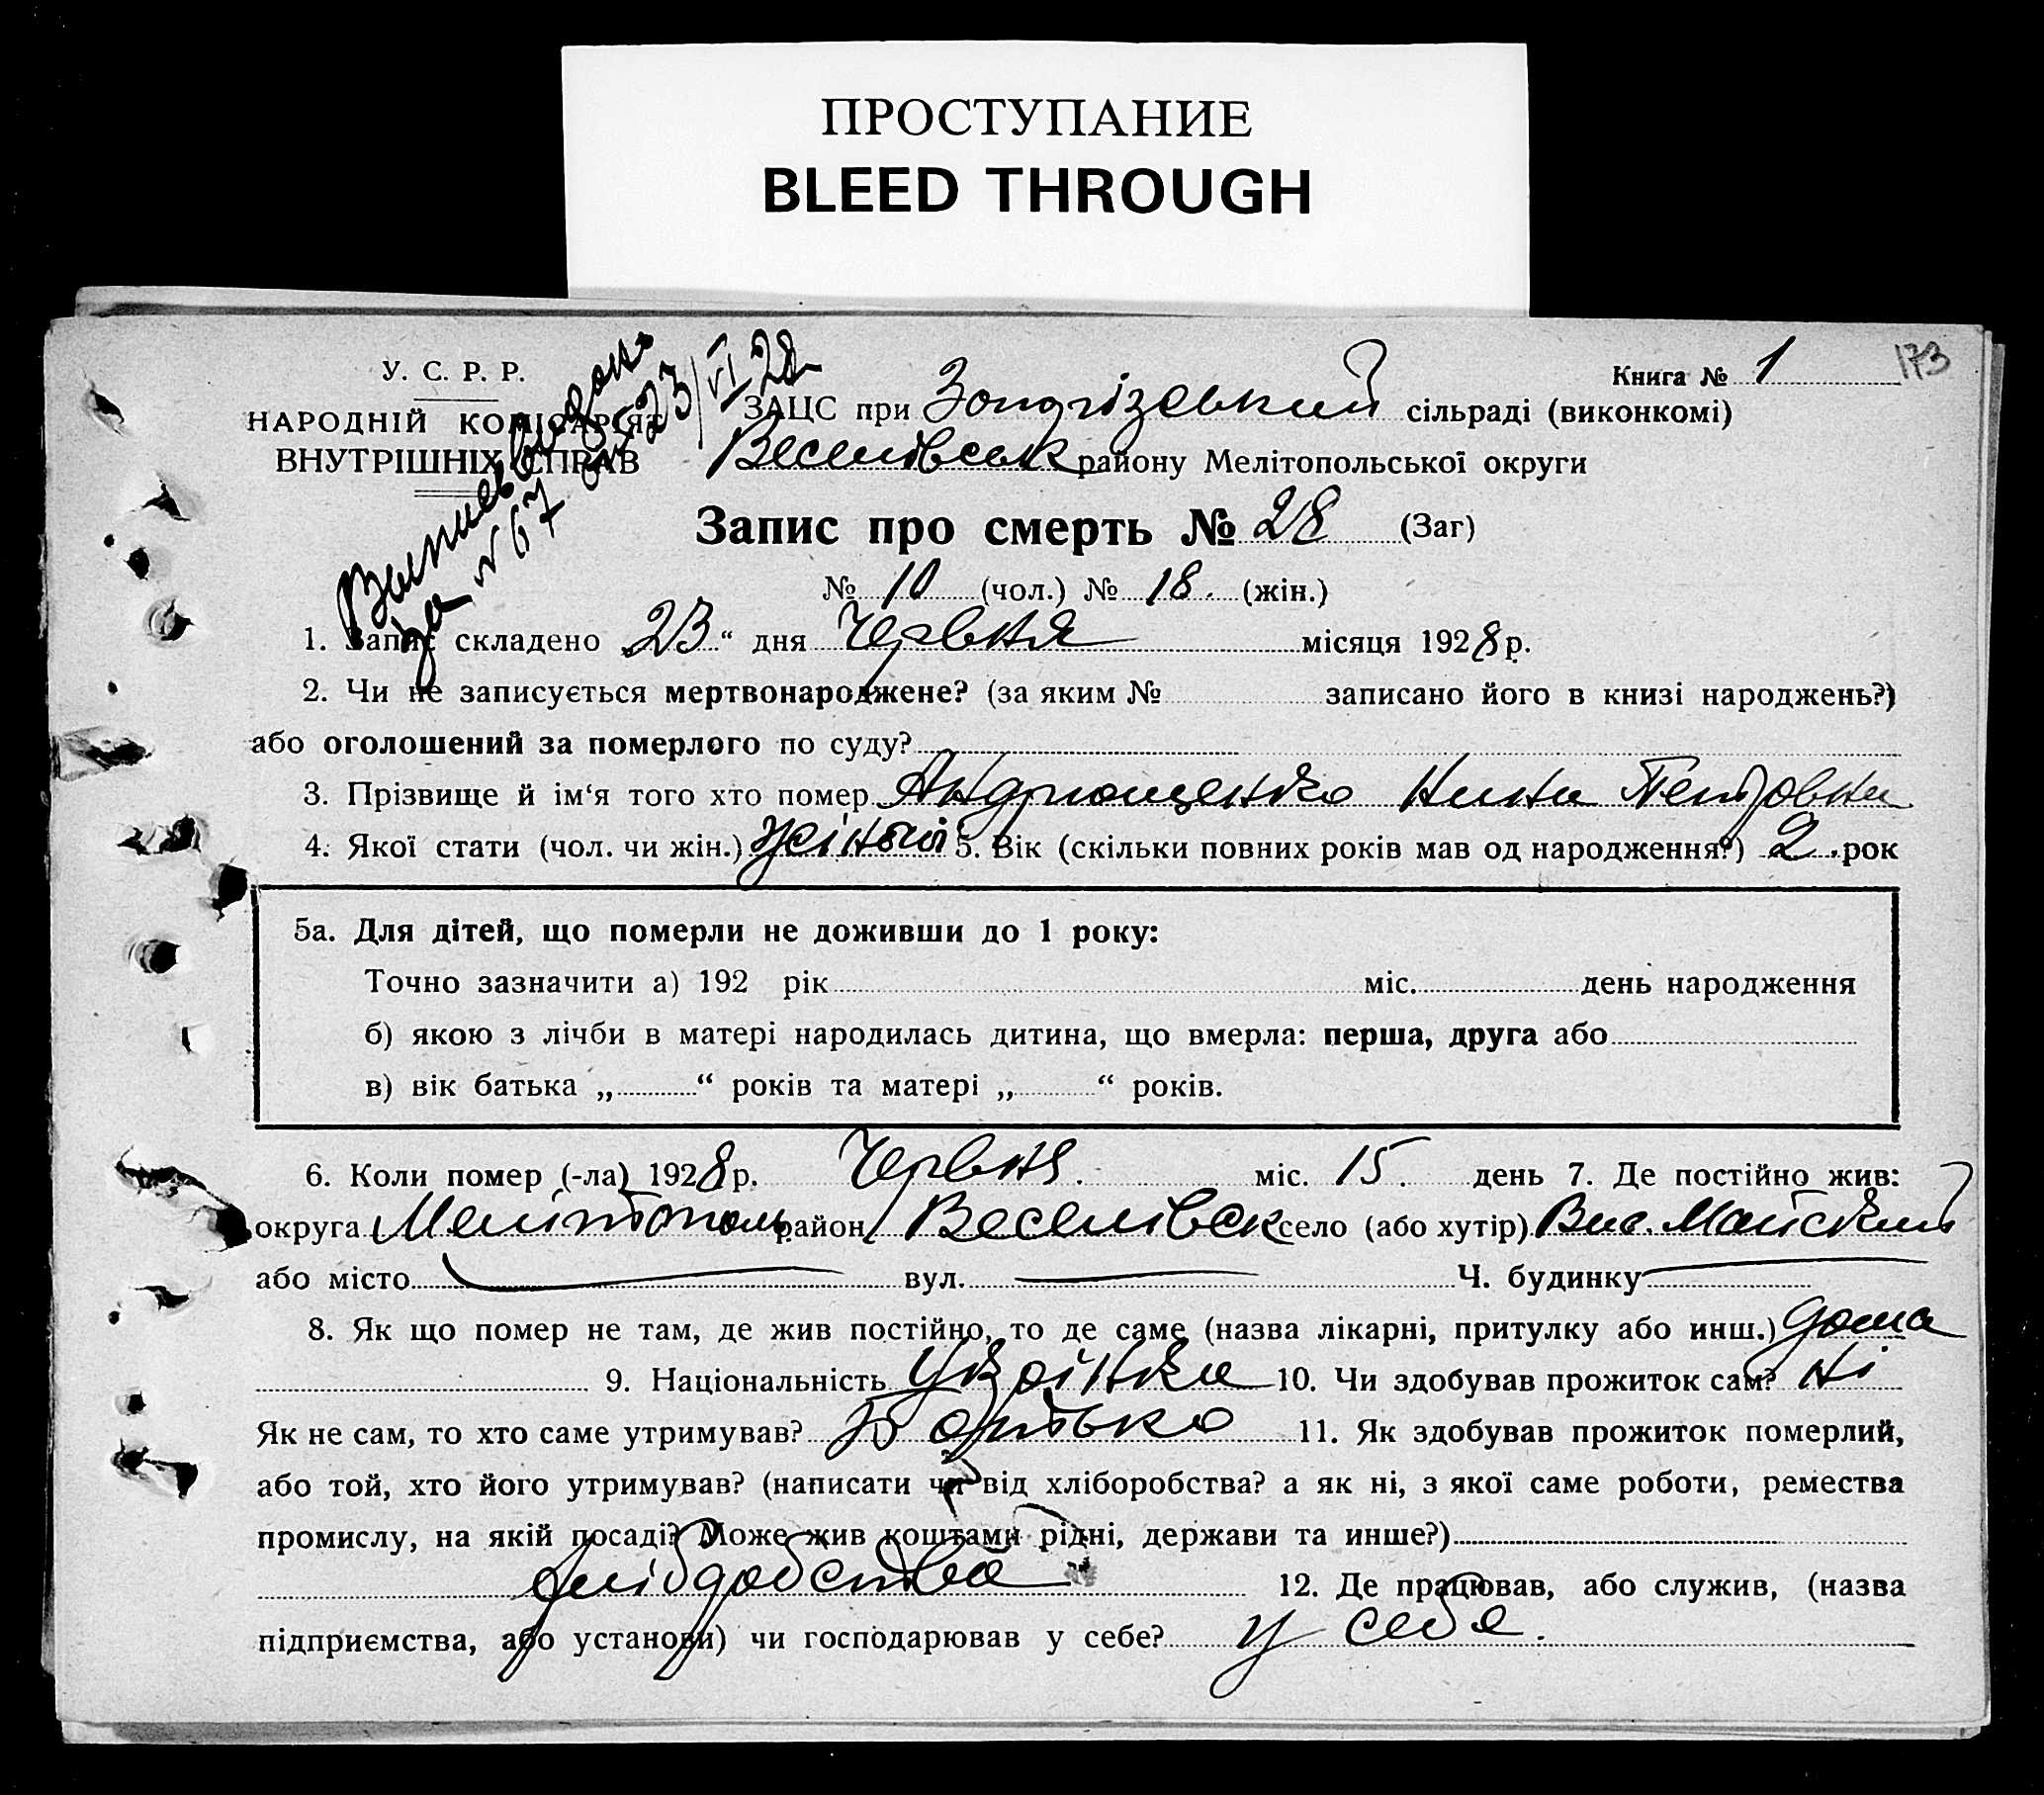 ПРОСТУПАНИЕ
BLEED THROUGH
У. С. Р. Р.
НАРОДНІЙ КОМІСАРІЯТ
ВНУТРІШНІХ СПРАВ
за № 67 от 23/VI 28
Книга № 1
173
ЗАЦС при сільраді (виконкомі)
Веселівськ району Мелітопольської округи
Запис про смерть № 28 (Заг)
№ 10 (чол.) № 18. (жін.)
1. Запис складено 23 “ дня Червня місяця 1928 р.
2. Чи не записується мертвонароджене? (за яким № записано його в книзі народжень?)
або оголошений за померлого по суду?
3. Прізвище й ім‘я того хто помер Андрющенко Нина Петровна
4. Якої стати (чол. чи жін.) 5. Вік (скільки повних років мав од народження?) 2 рок
5а. Для дітей, що померли не доживши до 1 року:
Точно зазначити а) 192 рік міс. день народження
б) якою з лічби в матері народилась дитина, що вмерла: перша, друга або
в) вік батька „ “ років та матері „ “ років.
6. Коли помер (-ла) 1928 р. Червня міс. 15. день 7. Де постійно жив:
округа Мелітополь район Веселівск село (або хутір) Вис. Майский
або місто вул. Ч. будинку
8. Як що помер не там, де жив постійно, то де саме (назва лікарні, притулку або инш.) дома
9. Національність Українка 10. Чи здобував прожиток сам? Ні
Як не сам, то хто саме утримував? батько 11. Як здобував прожиток померлий,
або той, хто його утримував? (написати чи від хліборобства? а як ні, з якої саме роботи, ремества
промислу, на якій посаді? Може жив коштами рідні, держави та инше?)
12. Де працював, або служив, (назва
підприємства, або установи) чи господарював у себе? у себе.